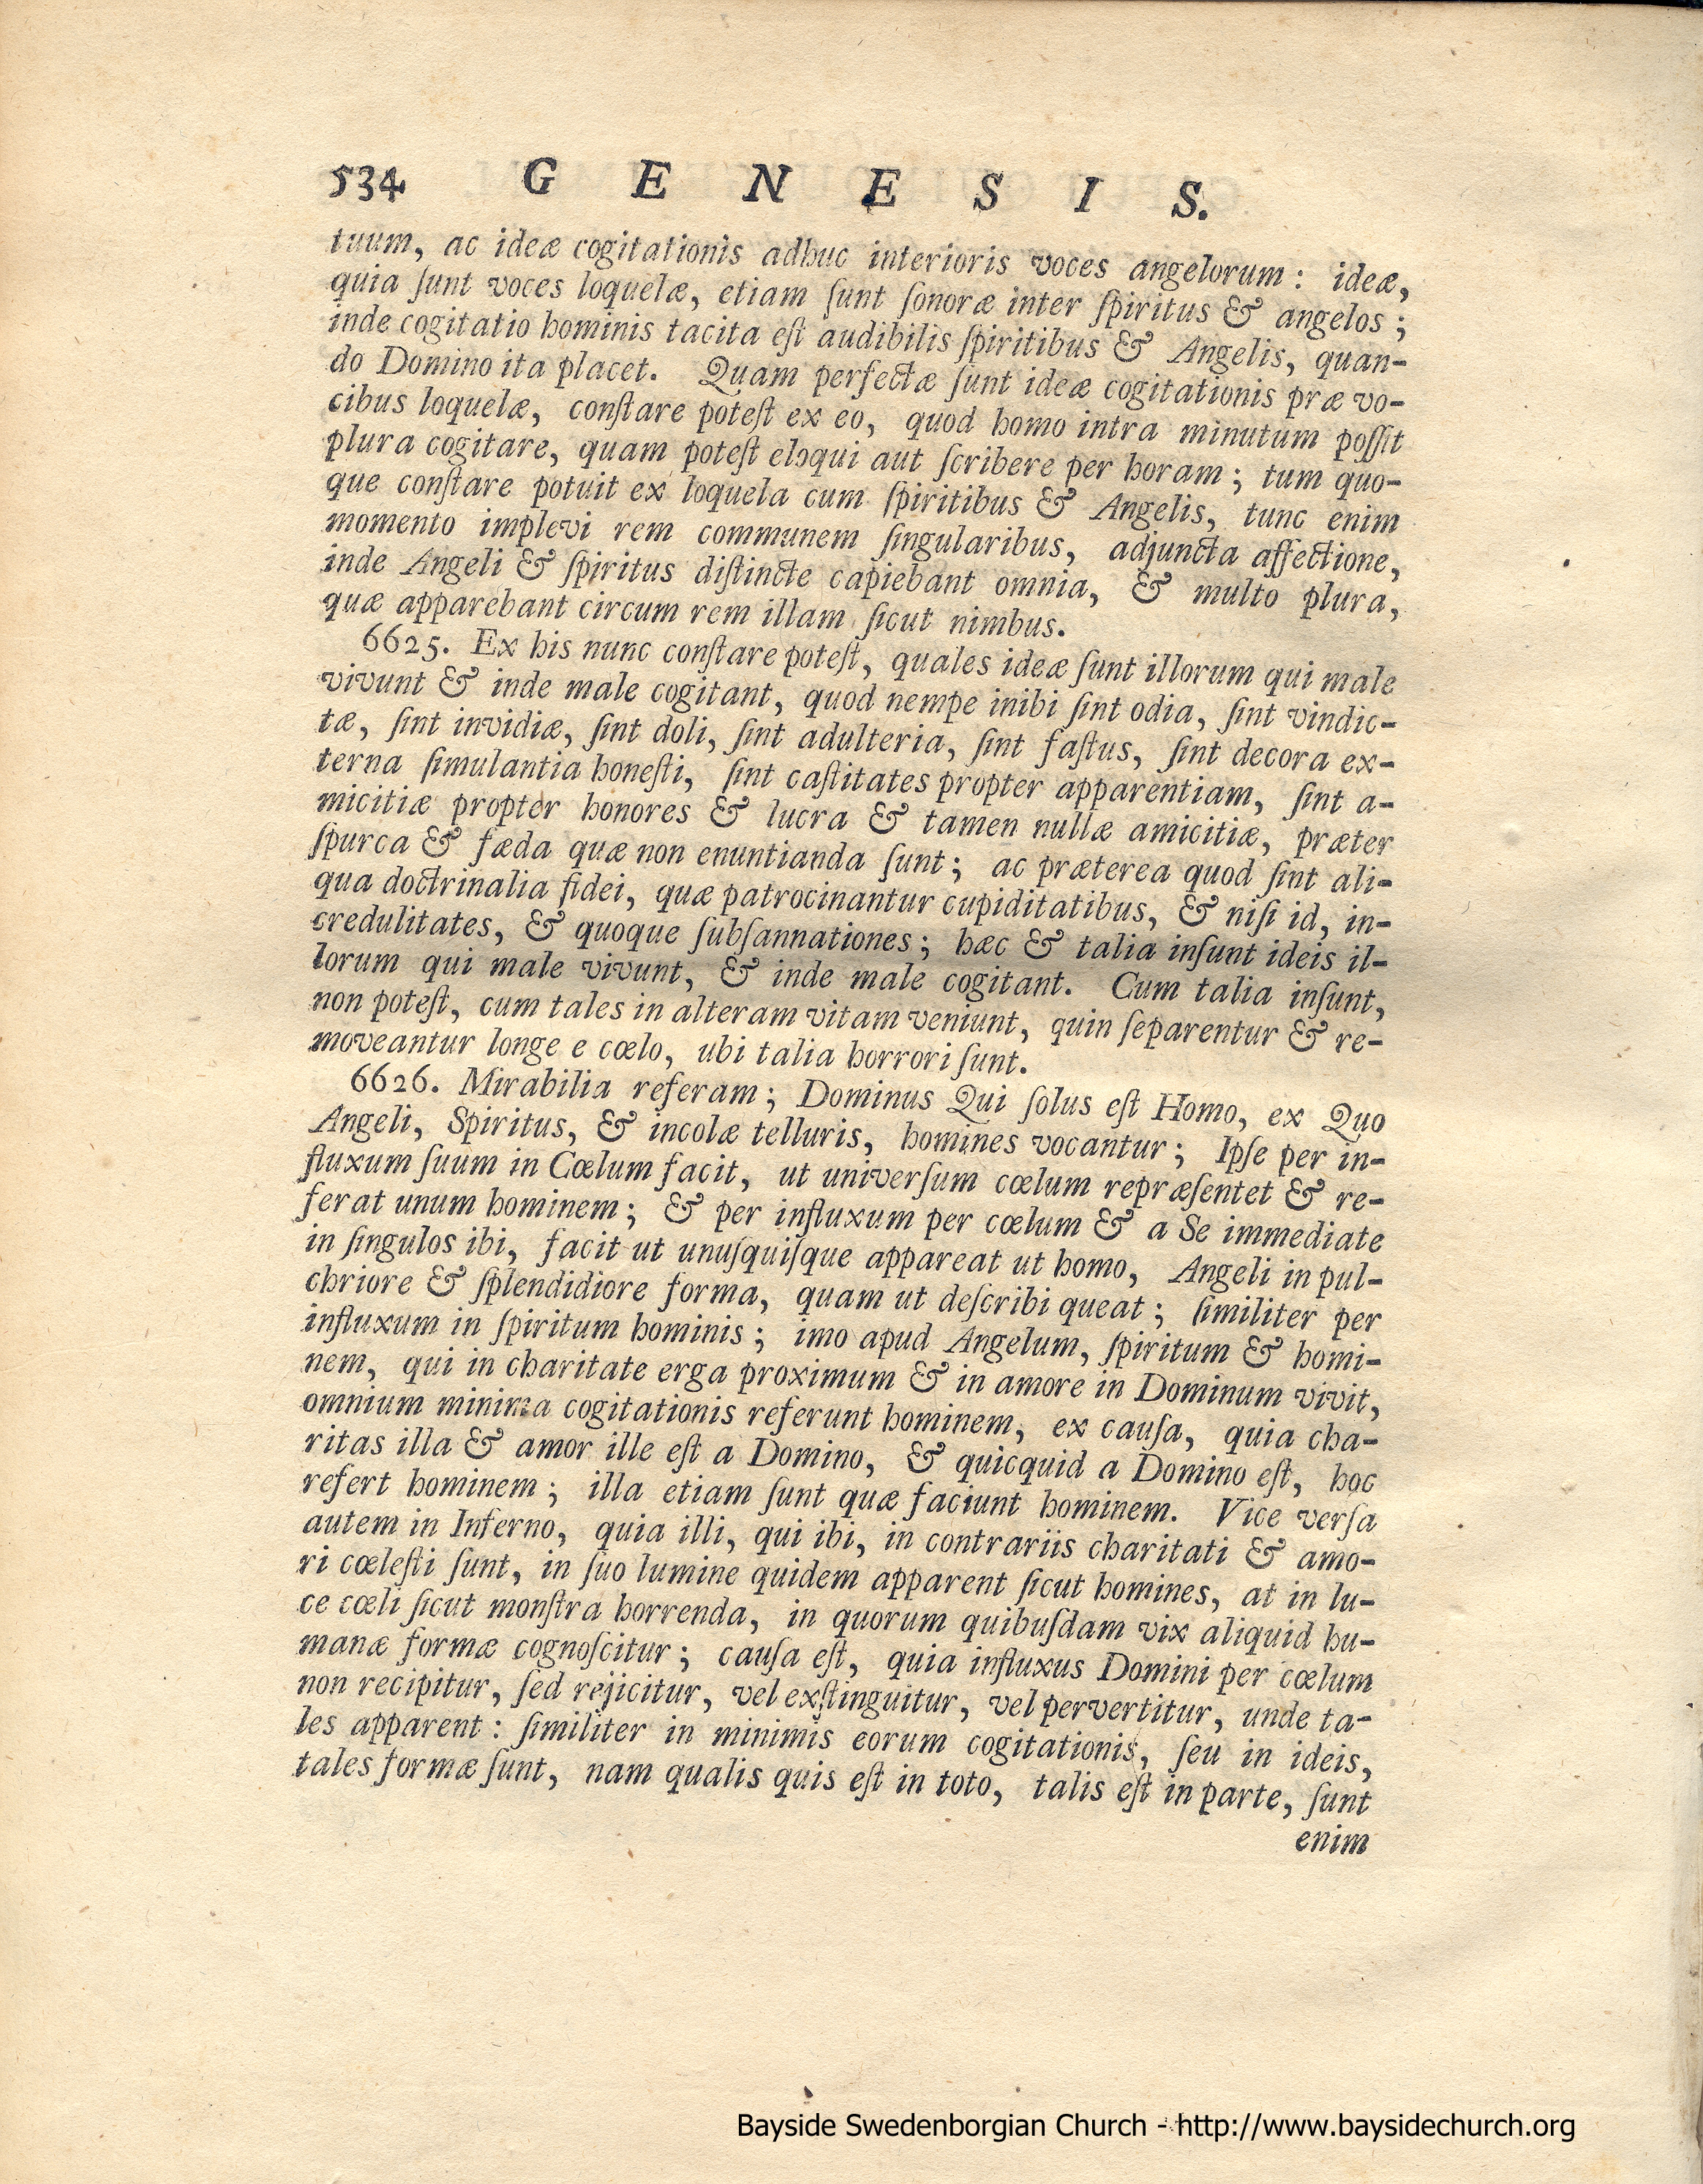 534 G E N E S I S.
tuum, ac ideæ cogitationis adhuc interioris voces angelorum: ideæ,
quia ſunt voces loquelæ, etiam ſunt ſonoræ inter ſpiritus & angelos;
inde cogitatio hominis tacita eſt audibilis ſpiritibus & Angelis, quan-
do Domino ita placet. Quam perfectæ ſunt ideæ cogitationis præ vo-
cibus loquelæ, conſtare poteſt ex eo, quod homo intra minutum poſſit
plura cogitare, quam poteſt eloqui aut ſcribere per horam; tum quo-
que conſtare potuit ex loquela cum ſpiritibus & Angelis, tunc enim
momento implevi rem communem ſingularibus, adjuncta affectione,
inde Angeli & ſpiritus diſtincte capiebant omnia, & multo plura,
quæ apparebant circum rem illam ſicut nimbus.
6625. Ex his nunc conſtare poteſt, quales ideæ ſunt illorum qui male
vivunt & inde male cogitant, quod nempe inibi ſint odia, ſint vindic-
tæ, ſint invidiæ, ſint doli, ſint adulteria, ſint faſtus, ſint decora ex-
terna ſimulantia honeſti, ſint caſtitates propter apparentiam, ſint a-
micitiæ propter honores & lucra & tamen nullæ amicitiæ, præter
ſpurca & fæda quæ non enuntianda ſunt; ac præterea quod ſint ali-
qua doctrinalia fidei, quæ patrocinantur cupiditatibus, & niſi id, in-
credulitates, & quoque ſubſannationes; hæc & talia inſunt ideis il-
lorum qui male vivunt, & inde male cogitant. Cum talia inſunt,
non poteſt, cum tales in alteram vitam veniunt, quin ſeparentur & re-
moveantur longe e cœlo, ubi talia horrori ſunt.
6626. Mirabilia referam; Dominus Qui ſolus eſt Homo, ex Quo
Angeli, Spiritus, & incolæ telluris, homines vocantur; Ipſe per in-
fluxum ſuum in Cœlum facit, ut univerſum cœlum repræſentet & re-
ferat unum hominem; & per influxum per cœlum & a Se immediate
in ſingulos ibi, facit ut unuſquiſque appareat ut homo, Angeli in pul-
chriore & ſplendidiore forma, quam ut deſcribi queat; ſimiliter per
influxum in ſpiritum hominis; imo apud Angelum, ſpiritum & homi-
nem, qui in charitate erga proximum & in amore in Dominum vivit,
omnium minima cogitationis referunt hominem, ex cauſa, quia cha-
ritas illa & amor ille eſt a Domino, & quicquid a Domino eſt, hoc
refert hominem; illa etiam ſunt quæ faciunt hominem. Vice verſa
autem in Inferno, quia illi, qui ibi, in contrariis charitati & amo-
ri cœleſti ſunt, in ſuo lumine quidem apparent ſicut homines, at in lu-
ce cœli ſicut monſtra horrenda, in quorum quibuſdam vix aliquid hu-
manæ formæ cognoſcitur; cauſa eſt, quia influxus Domini per cœlum
non recipitur, ſed rejicitur, vel exſtinguitur, vel pervertitur, unde ta-
les apparent: ſimiliter in minimis eorum cogitationis, ſeu in ideis,
tales formæ ſunt, nam qualis quis eſt in toto, talis eſt in parte, ſunt
enim
Bayside Swedenborgian Church - http://www.baysidechurch.org